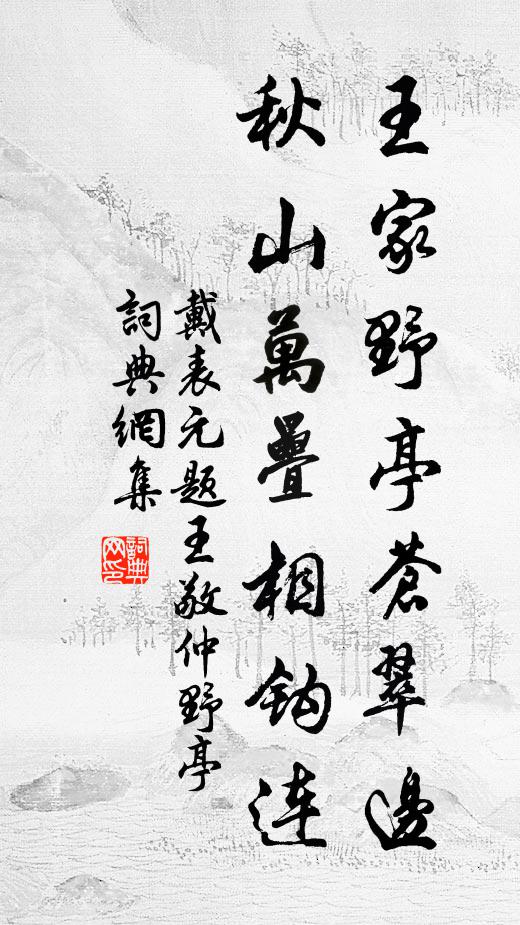 王家野亭蒼翠邊
秋山萬疊相鈎連
戴表元題王敬仲野亭
詞典網集
詞典网印